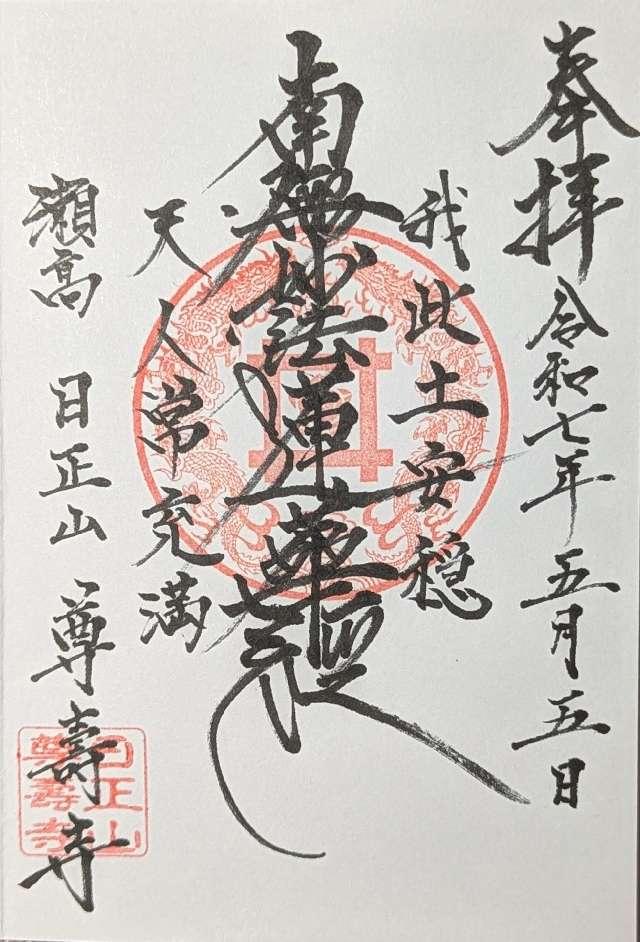 奉拝 令和七年 五月五日
我此土安穏
南無妙法蓮華経
天人常充満
瀬高 日正山 尊壽寺
日正山
尊壽寺